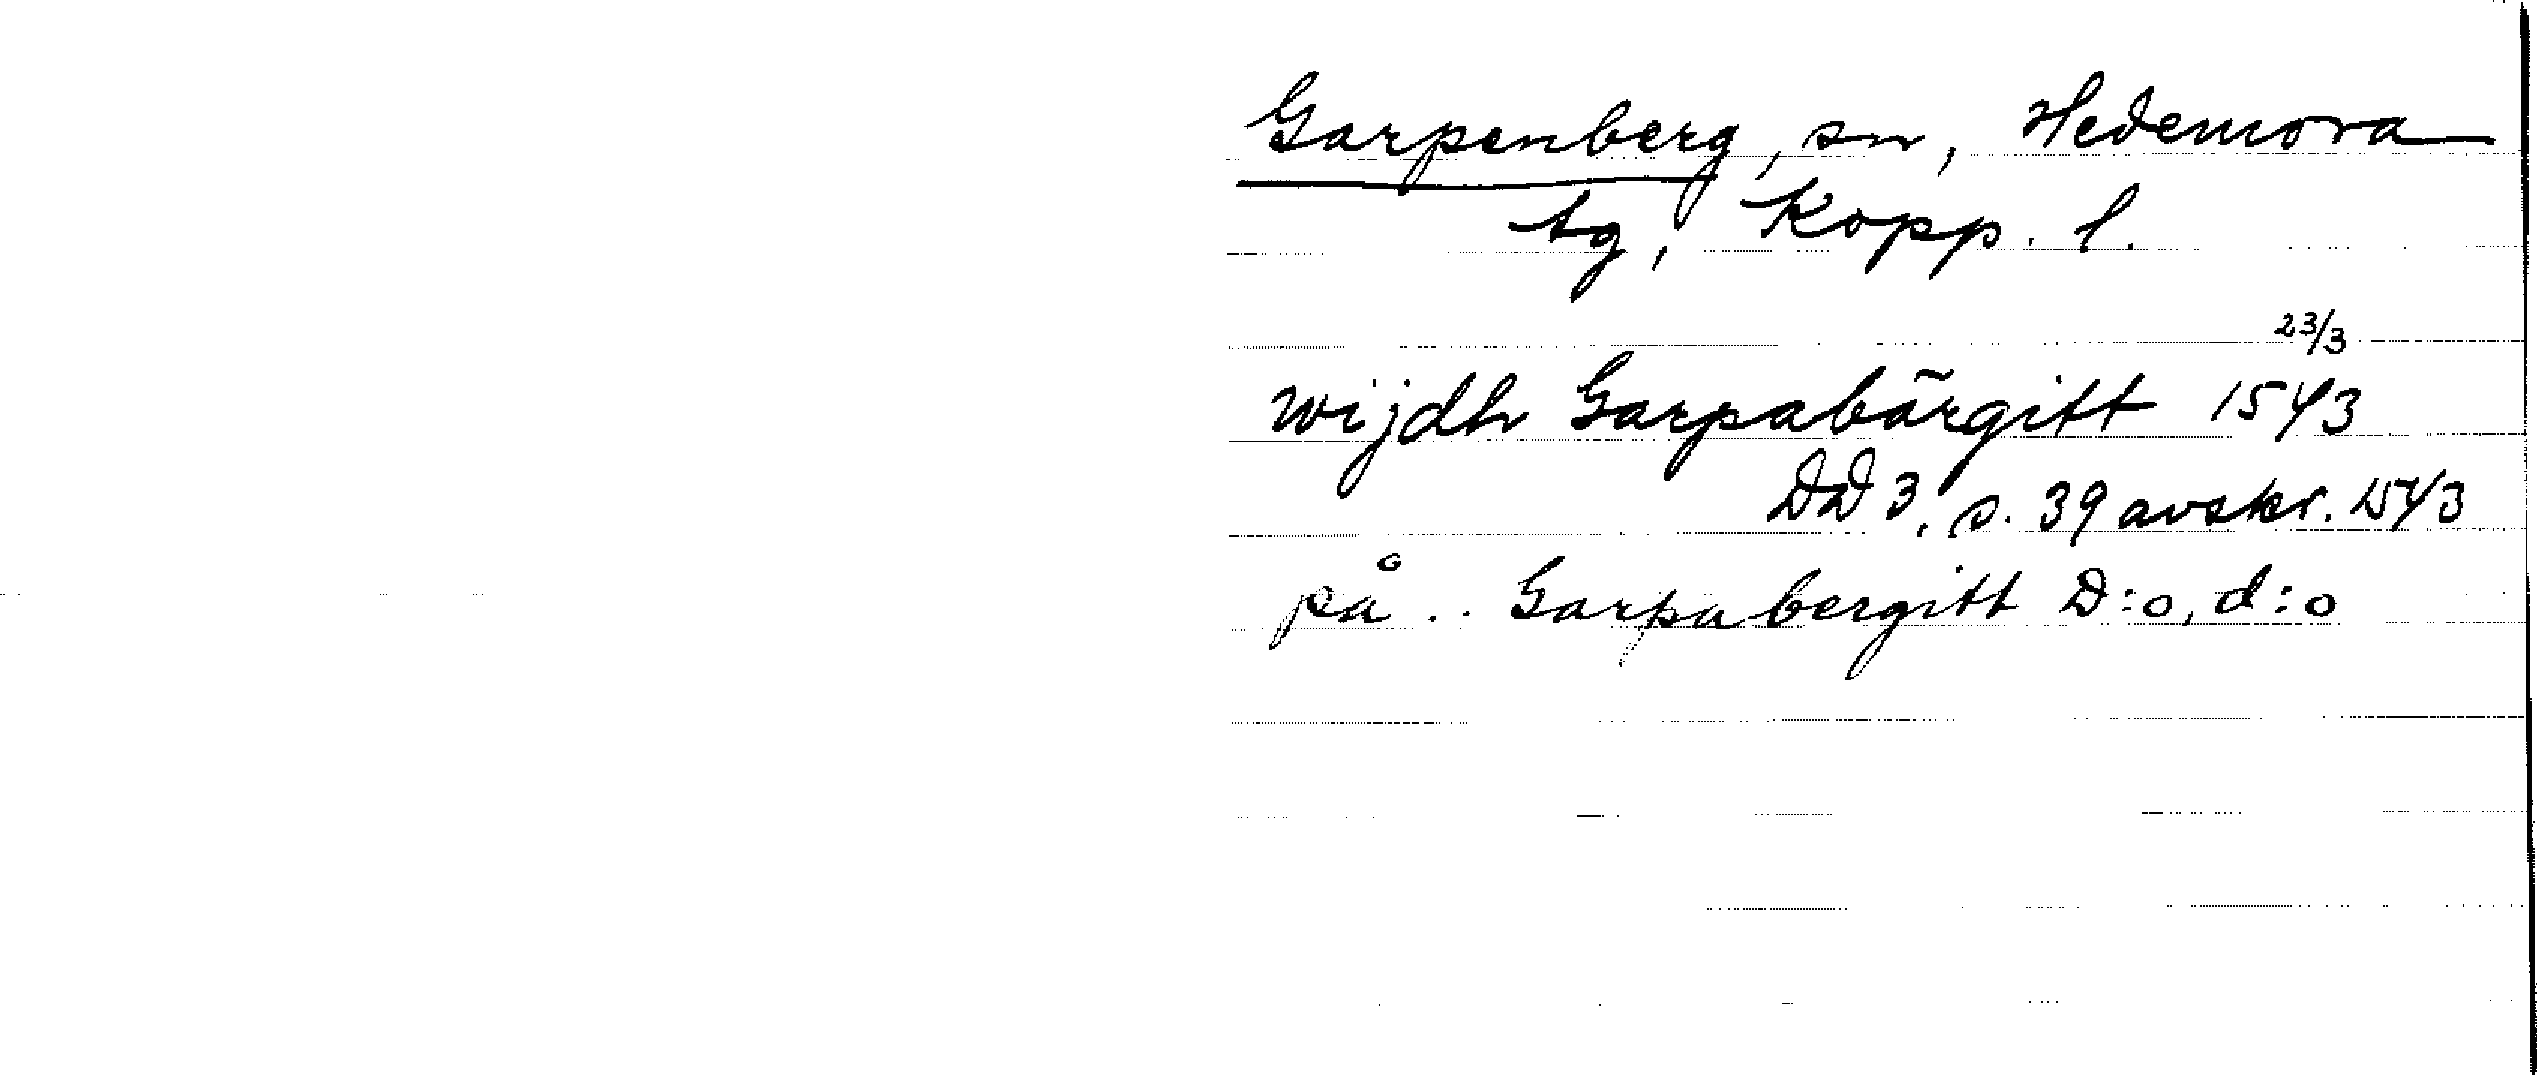 Garpenberg, sn, Hedemora
tg, Kopp. l.
23/3
wijdh Garpabärgitt 1543
DD 3, s. 39 avskr. 1543
på . . Garpabergitt D:o, d:o